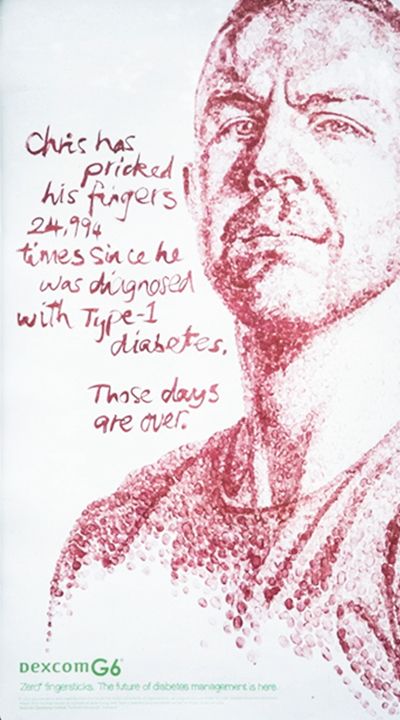 Chris has
pricked
his fingers
24,994
times since he
was diagnosed
with Type-1
diabetes.
Those days
are over.
Dexcom G6
Zero* fingersticks. The future of diabetes management is here.